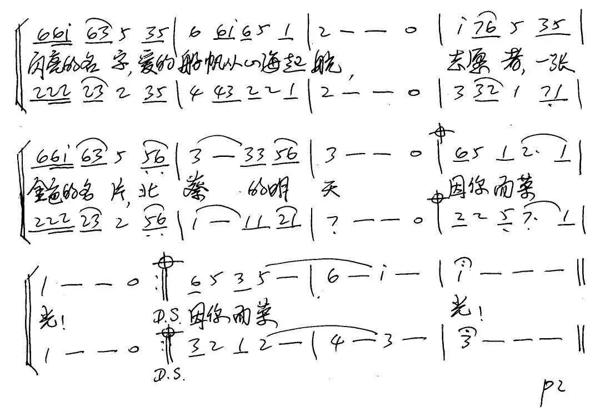 66i 63 5 35 | 6 6i65 1 | 2 — — 0 | i 76 5 35 |
闪亮的名字,爱的船帆从心海起航, 志愿者,一张
222 23 2 35 | 4 43 2 2 1 | 2 — — 0 | 3 32 1 71 |
66i 63 5 56 | 3 — 33 56 | 3 — — 0 | 65 1 2· 1 |
金色的名片,北蔡 的明 天 因你而荣
222 23 2 56 | 1 — 11 21 | 7 — — 0 | 22 5 7· 1 |
1 — — 0 :‖ 6 5 3 5 — | 6 — i — | i — — — ‖
光! D.S. 因你而荣 光!
1 — — 0 :‖ 3 2 1 2 — | 4 — 3 — | 3 — — — ‖
D.S.
P2